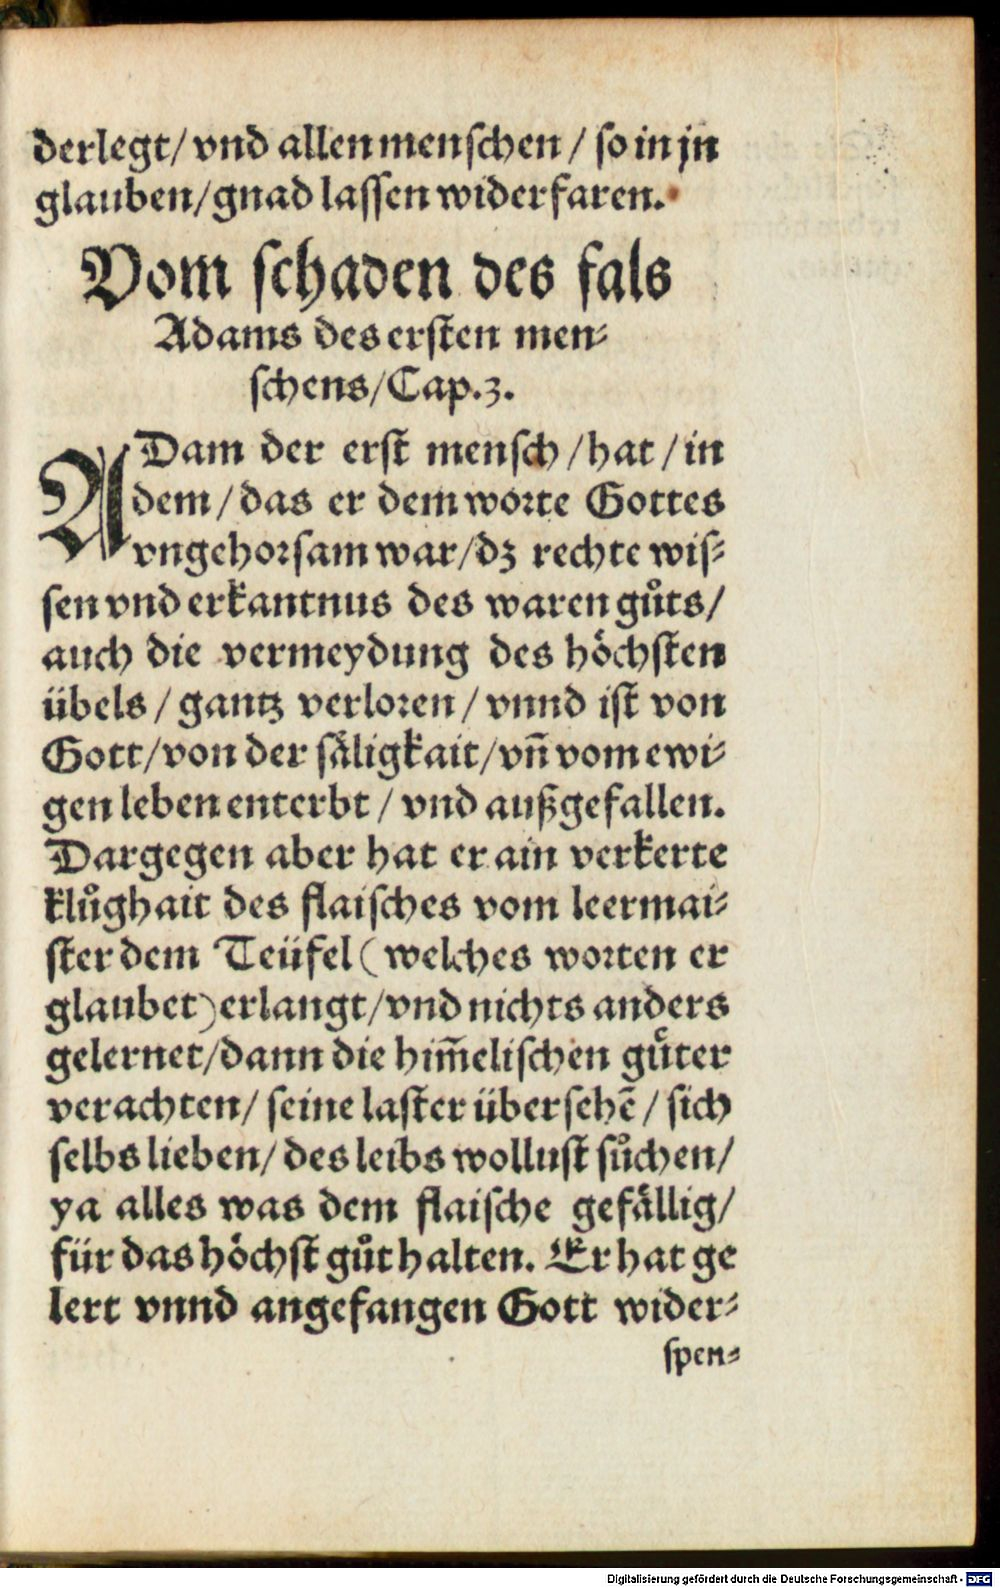 derlegt/ vnd allen menschen / so in jn
glauben/gnad lassen widerfaren.
Vom schaden des fals
Adams des ersten men⸗
schens/Cap.3.
ADam der erst mensch /hat /in
dem /das er dem worte Gottes
vngehorsam war/dz rechte wis⸗
sen vnd erkantnus des waren gůts/
auch die vermeydung des hoͤchsten
übels / gantz verloren / vnnd ist von
Gott/von der saͤligkait/vñ vom ewi⸗
gen leben enterbt / vnd außgefallen.
Dargegen aber hat er ain verkerte
klůghait des flaisches vom leermai⸗
ster dem Teüfel (welches worten er
glaubet)erlangt/vnd nichts anders
gelernet/dann die him̃elischen guͤter
verachten/ seine laster übersehẽ / sich
selbs lieben/ des leibs wollust sůchen/
ya alles was dem flaische gefaͤllig/
für das hoͤchst gůt halten. Er hat ge
lert vnnd angefangen Gott wider⸗
spen⸗
Digitalisierung gefördert durch die Deutsche Forschungsgemeinschaft - DFG